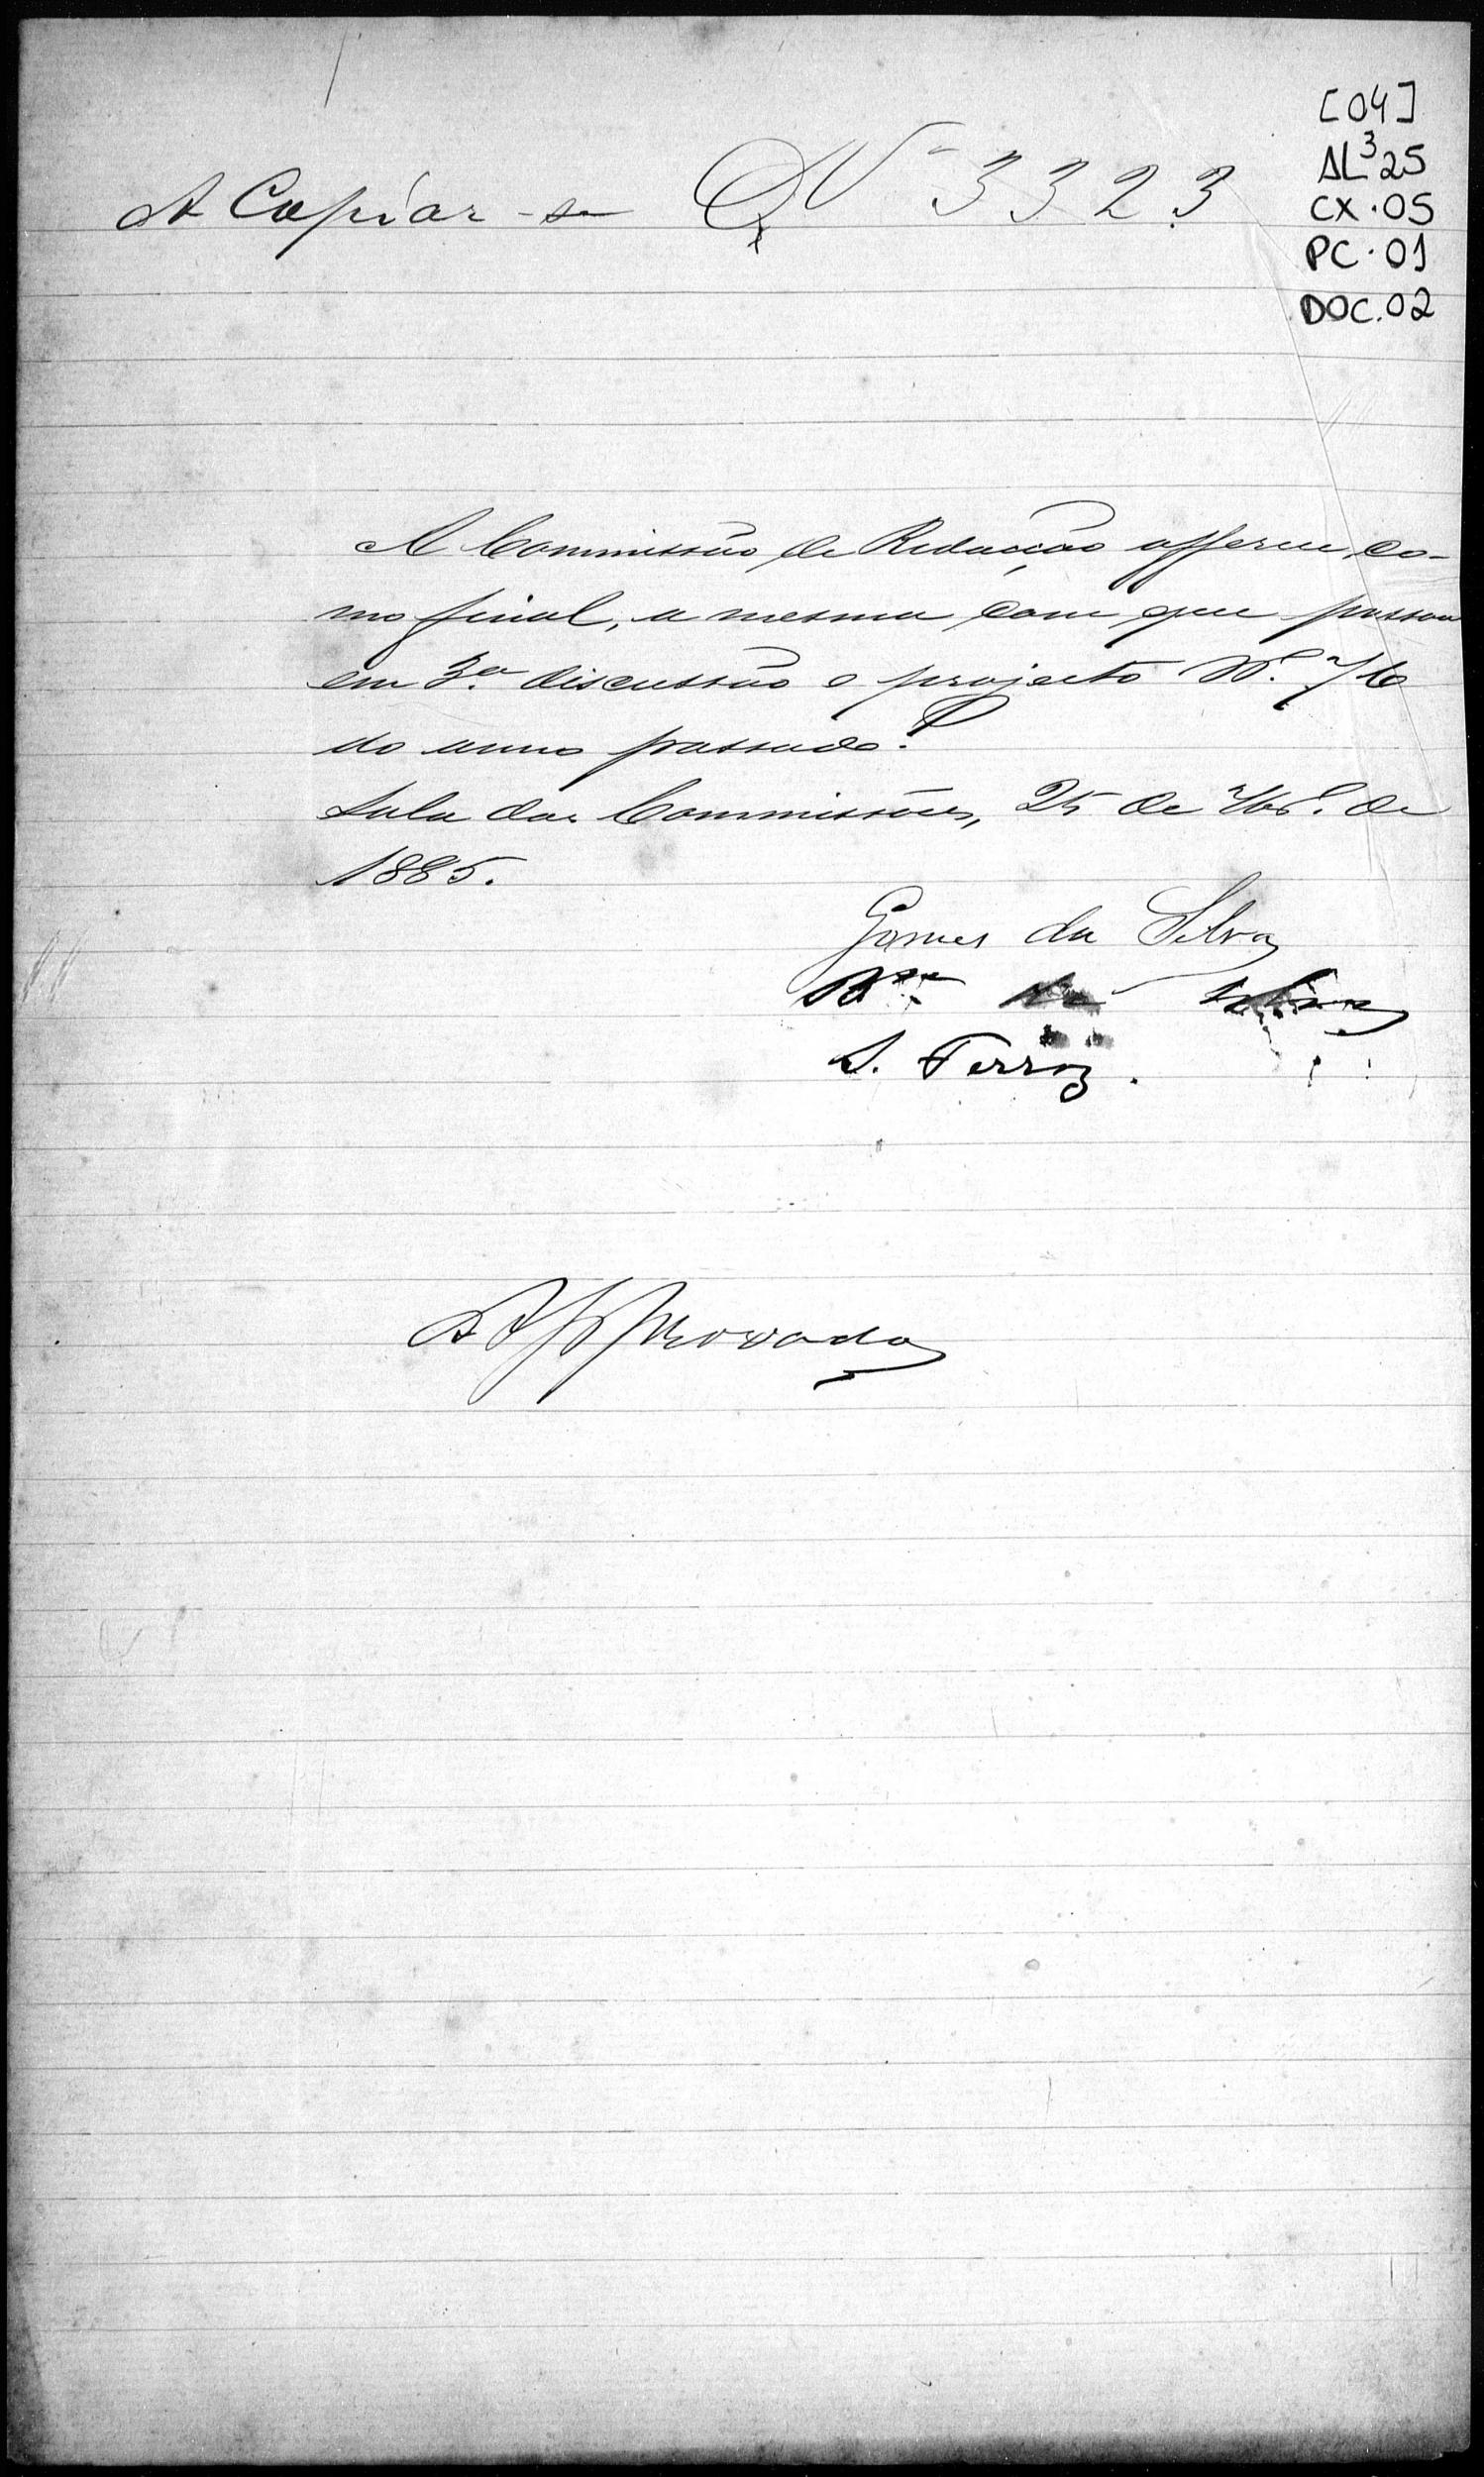 [04]
AL³25
CX.05
PC.01
DOC.02
A Copiar-se Nº 3323
A Commissão de Redacção offerece, co-
mo final, a mesma com que passou
em 3ª discussão o projecto Nº 76
do anno passado.
Sala das Commissões, 25 de 7bro. de
1885.
Gomes da Silva
da Silva
S. Ferraz.
Approvada